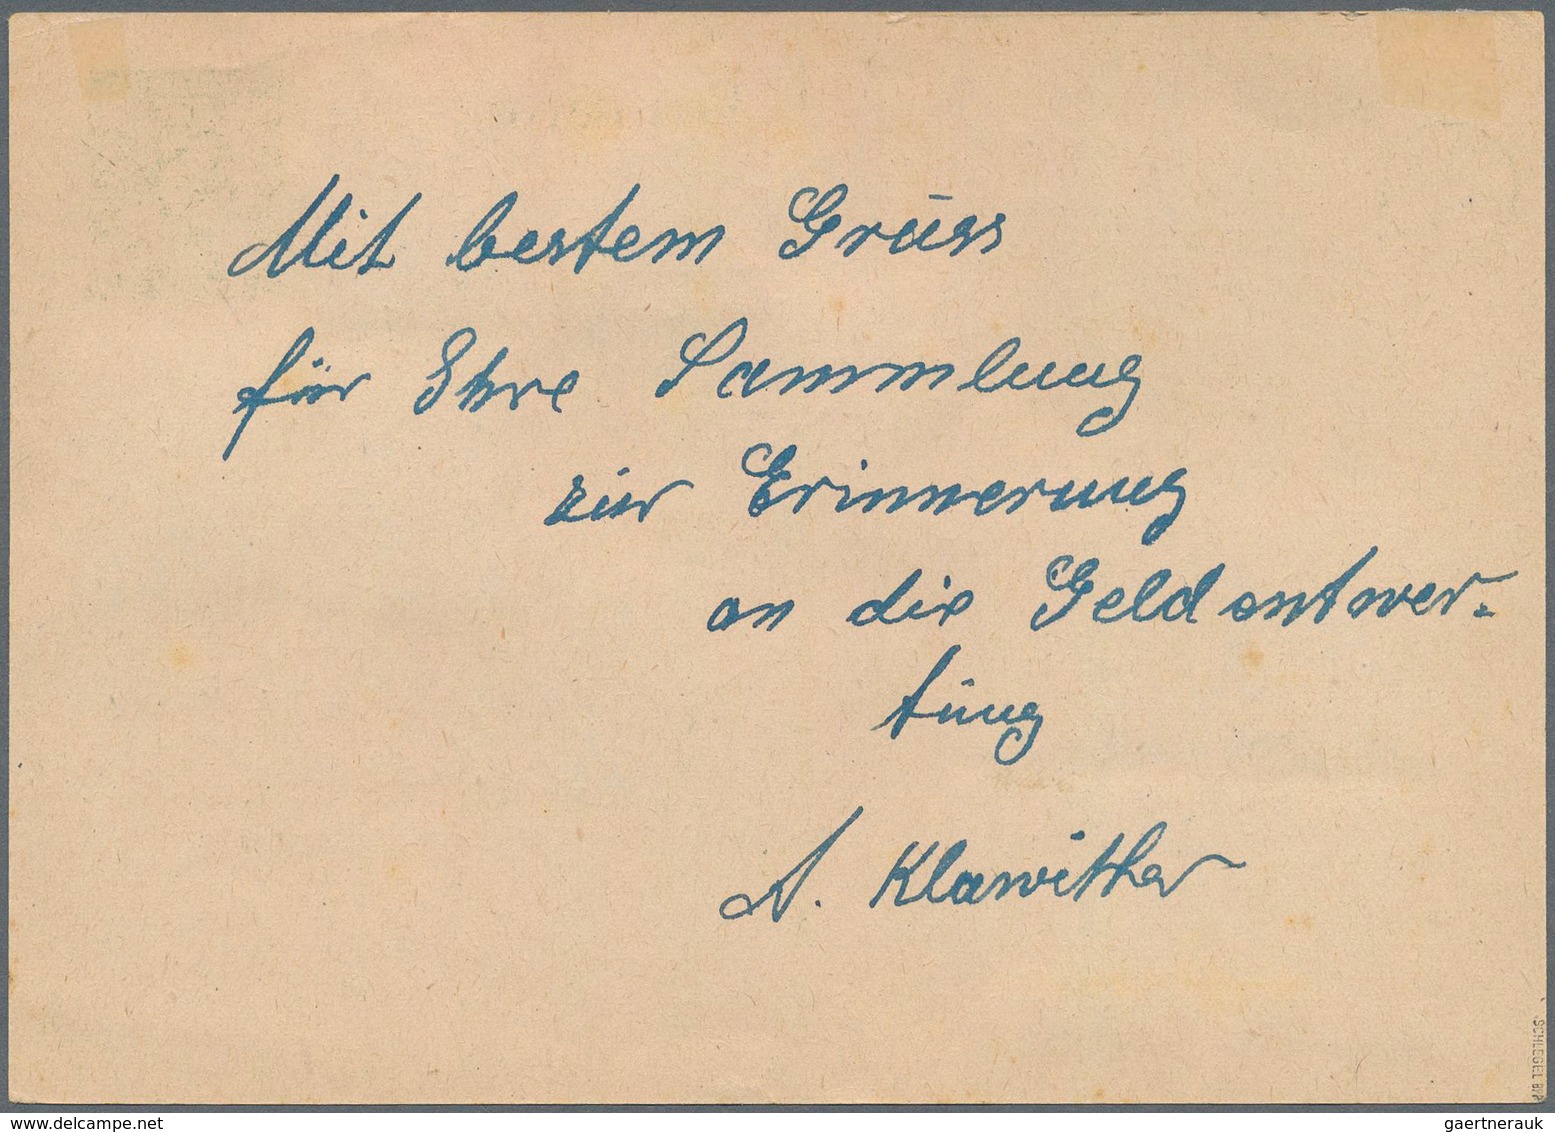 Mit bestem Gruss
für Ihre Sammlung
zur Erinnerung
an die Geldentwer-
tung
A. Klawitter
SCHLEGEL BPP
gaertnerauk @ delcampe.net